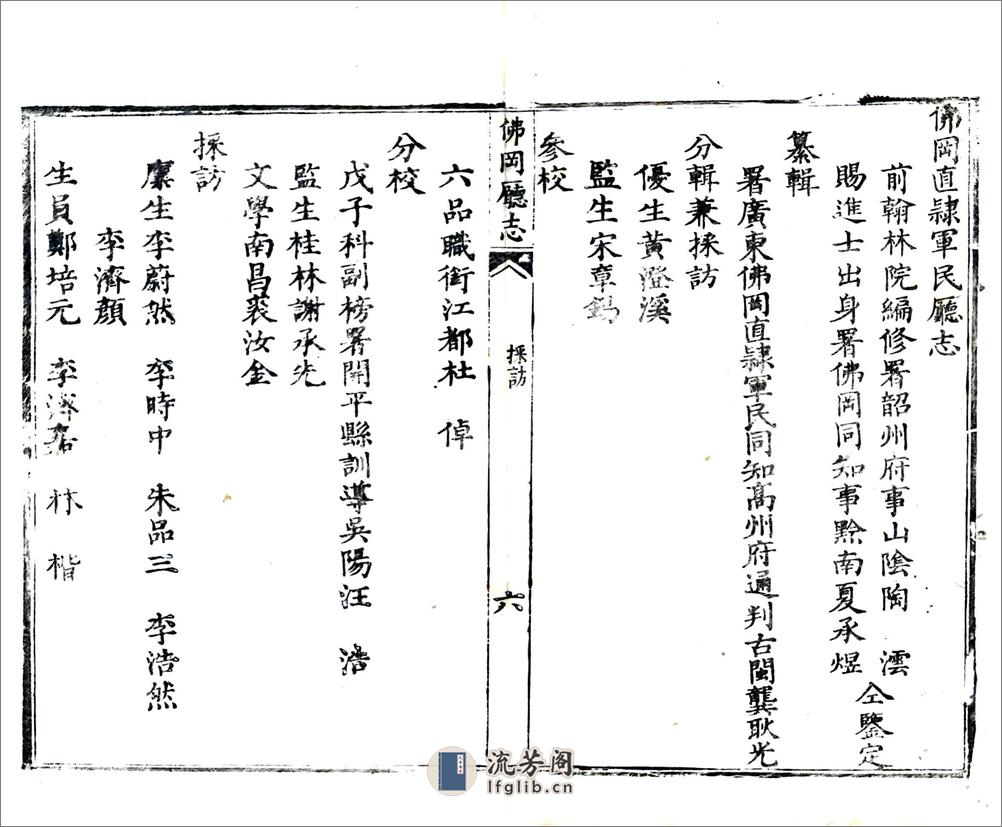 佛岡直隷軍民廳志
前翰林院編修署韶州府事山陰陶 澐
賜進士出身署佛岡同知事黔南夏承煜
仝鑒定
纂輯
署廣東佛岡直隷軍民同知高州府通判古閩龔耿光
分輯兼採訪
優生黃澄溪
監生宋章
參校
佛岡廳志
採訪
六
六品職銜江都杜 倬
分校
戊子科副榜署開平縣訓導吳陽汪 浩
監生桂林謝承光
文學南昌裘汝金
採訪
廪生李蔚然 李時中 朱品三 李浩然
李濟顏
生員鄭培元 李濟 林 楷
流芳阁
lfglib.cn